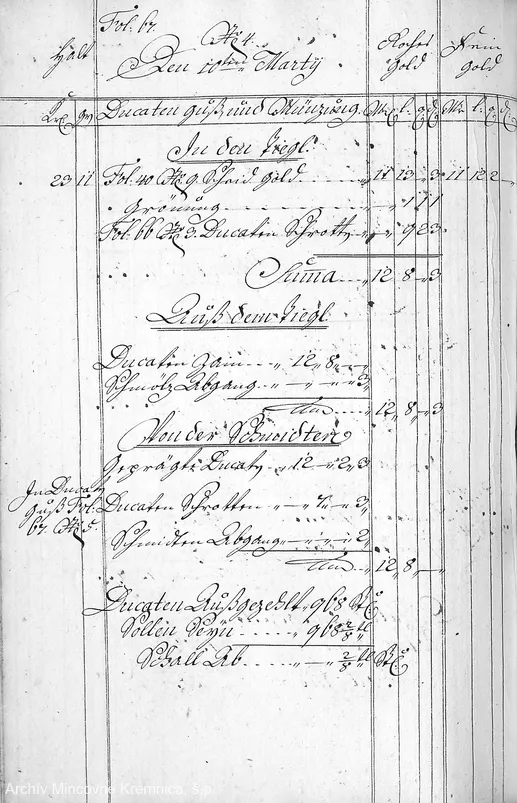 Fol. 67.
Nr. 4.
Halt
Den 10ten Marty
Roches Gold
Fein Gold
Krt. gr Ducaten guß und Münzung. Mr. l. q d Mr. l. q d
In den Tiegl.
23 11 Fol. 40 Nr. 9. Scheid Gold 11 13 3 11 12 2
Grönung 1 1 1
Fol. 66 Nr. 3. Ducaten Schrott 9 2 3
Summa 12 8 3
Auß dem Tiegl
Ducaten Zain 12 8
Schmölz Abgang 3
12 8 3
Von der Schmidten
Geprägte Ducaty 12 2 3
In Ducaty
guß Fol.
67. Nr. 5
Ducaten Schrotten 3
Schmidten Abgang 2
12 8
Ducaten Außgezehlt 968 St.
Sollen Seyn 968 2/8 tl
Schall Ab 2/8 tl St.
Archív Mincovne Kremnica, š.p.